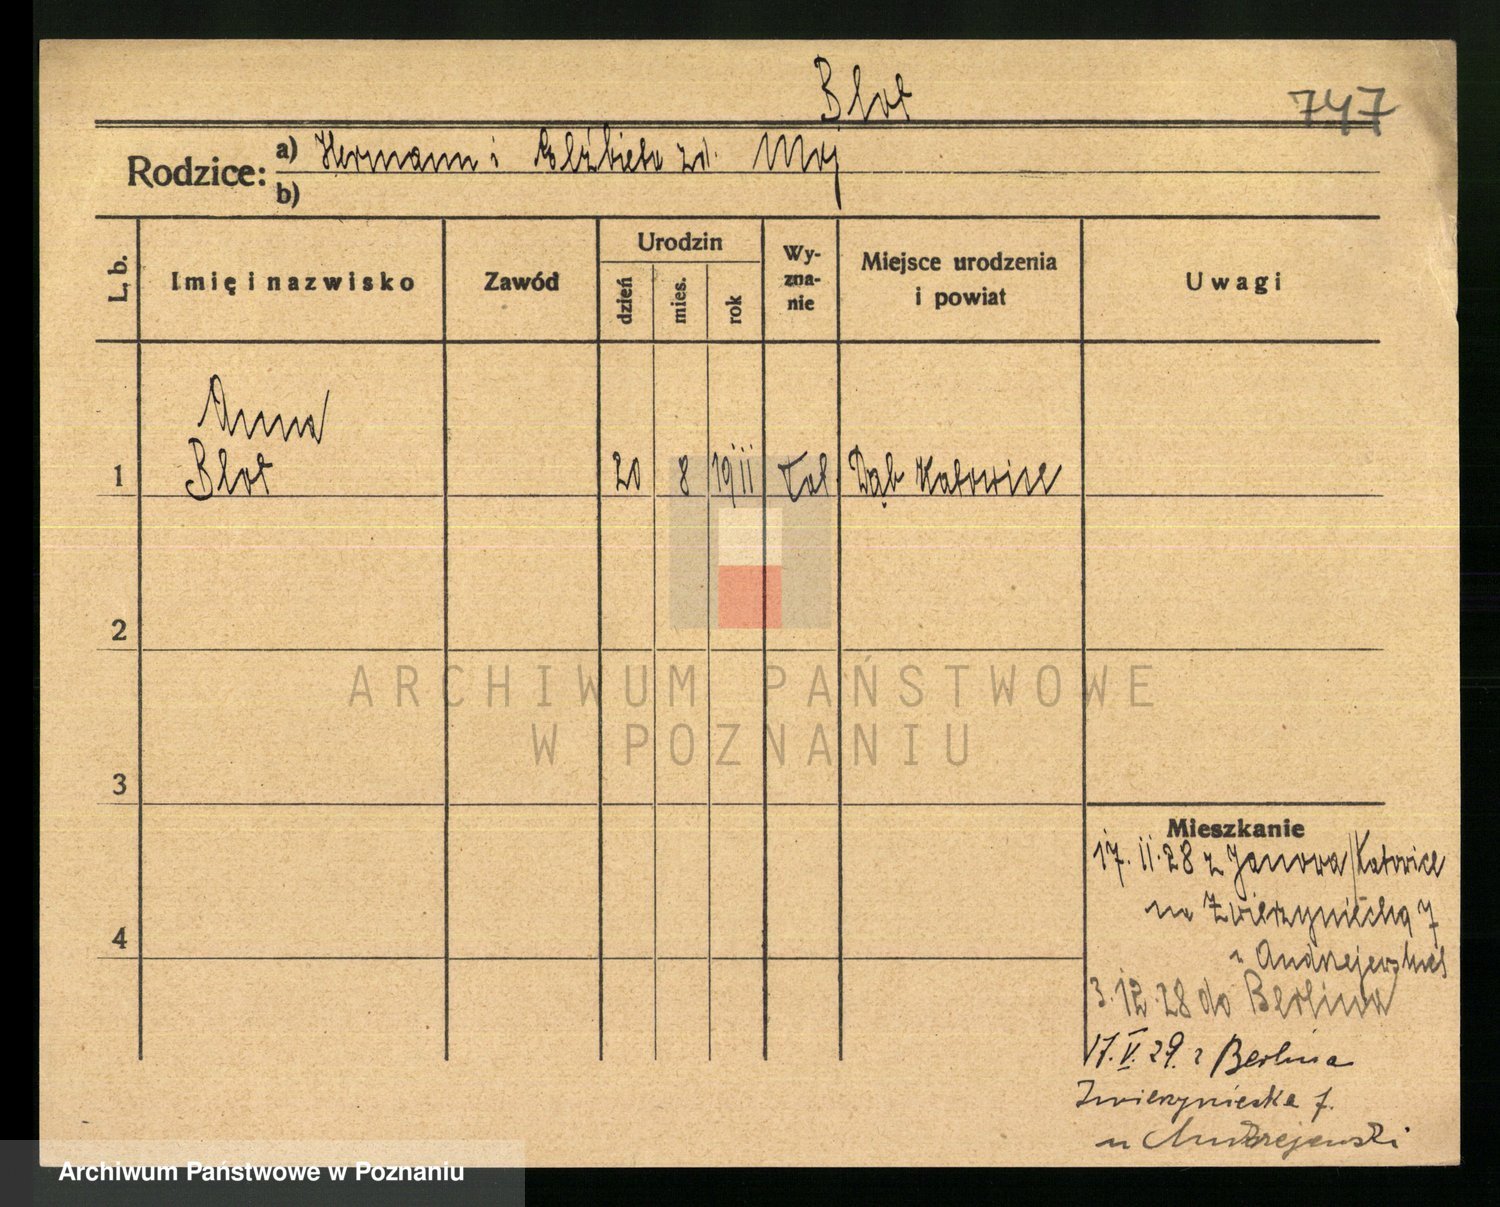 Blot
747
Rodzice: a) Hermann i Elżbieta zd. Moj
b)
L. b.
Imię i nazwisko
Zawód
Urodzin
dzień
mies.
rok
Wy-
zna-
nie
Miejsce urodzenia
i powiat
Uwagi
Anna
1 Blot 20 8 1911 kat Dąb Katowice
2
ARCHIWUM PAŃSTWOWE
W POZNANIU
3
Mieszkanie
17.11.28 z Janowa/Katowice
na Zwierzyniecką 7
Andrzejewski
4
3.12.28 do Berlina
17.V.29. z Berlina
Zwierzyniecka 7.
u Andrzejewski
Archiwum Państwowe w Poznaniu